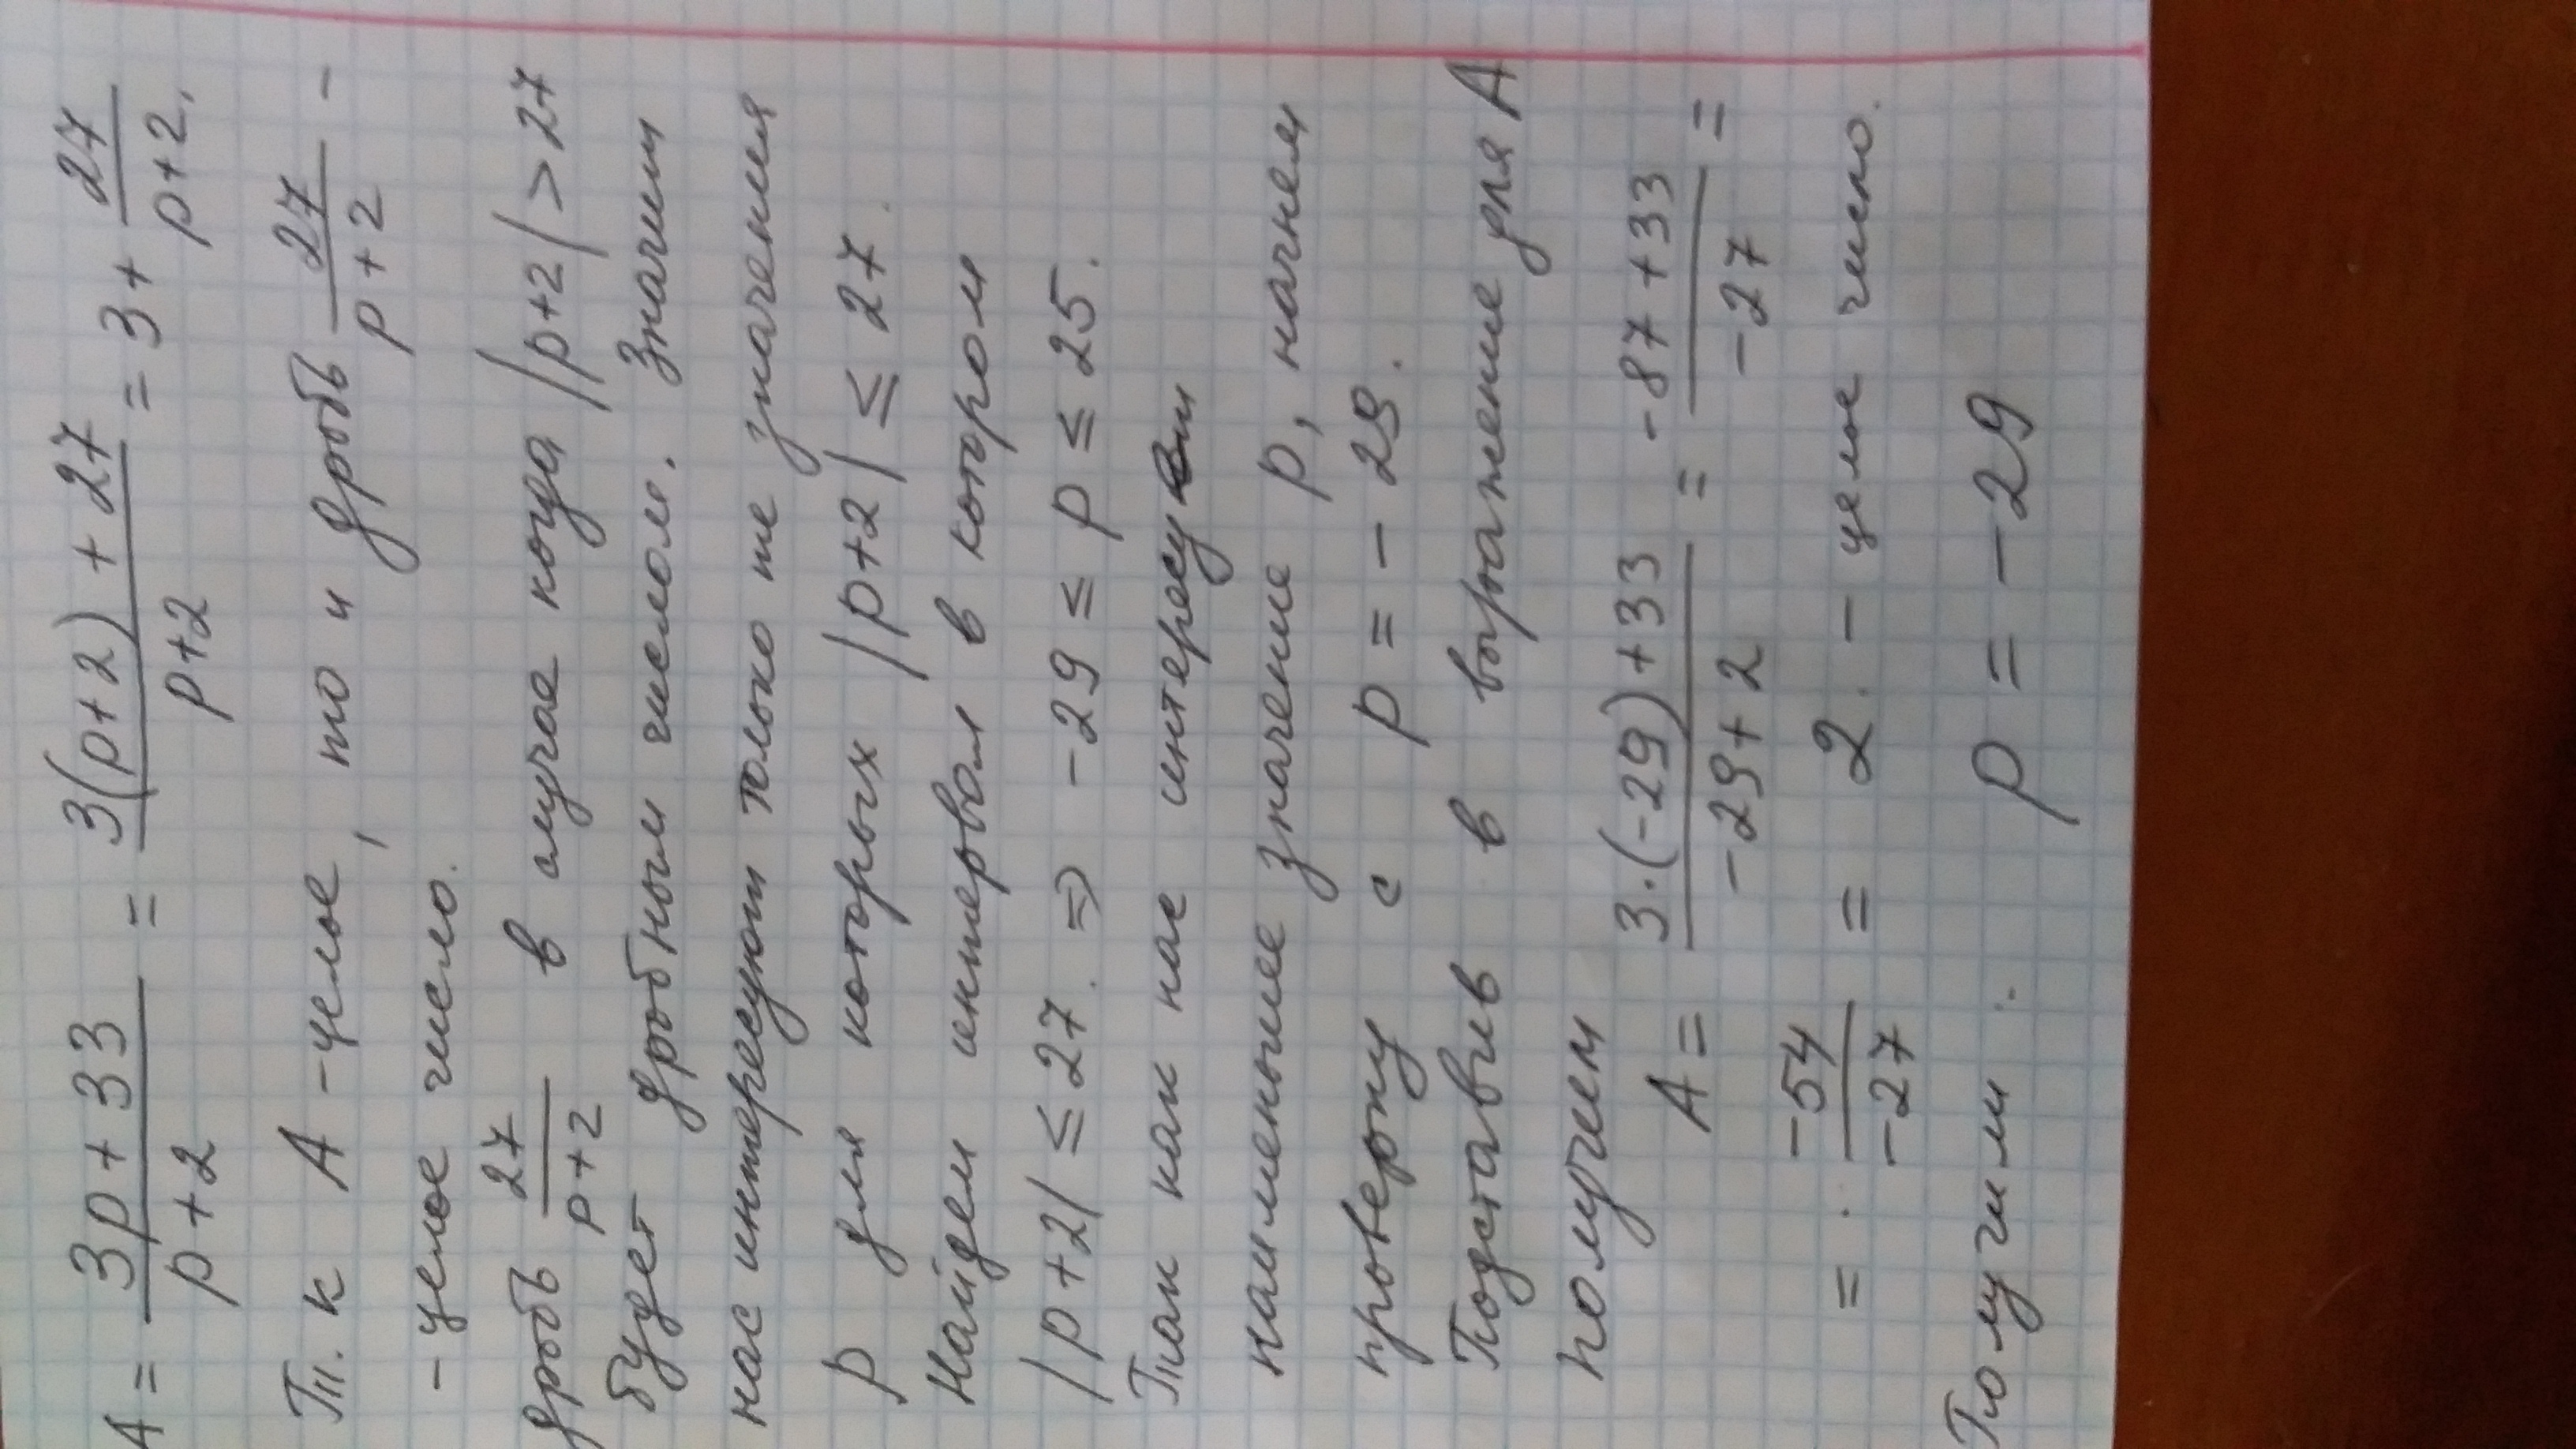 A = \frac{3p + 33}{p + 2} = \frac{3(p+2) + 27}{p+2} = 3 + \frac{27}{p+2},
Т. к А - целое, то и дробь \frac{27}{p+2} -
- целое число.
дробь \frac{27}{p+2} в случае когда |p+2| > 27
будет дробным числом. Значит
нас интересуют только те значения
p для которых |p+2| ≤ 27.
Найдем интервал в котором
|p+2| ≤ 27. ⇒ -29 ≤ p ≤ 25.
Так как нас интересует
наименьшее значение p, начнем
проверку с p = - 29.
Подставив в выражение для А
получем
A = \frac{3·(-29)+33}{-29+2} = \frac{-87+33}{-27} =
= \frac{-54}{-27} = 2. - целое число.
Получим: p = - 29